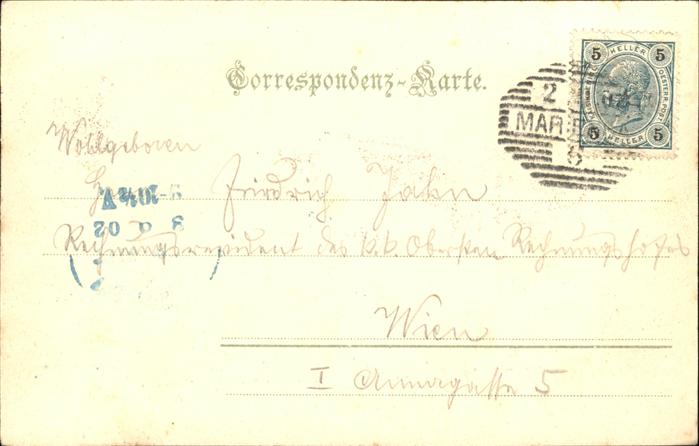 5 HELLER 5
5 HELLER 5
Correspondenz-Karte.
2
MAR
6
Wohlgeboren
Herrn Friedrich Jahn
Rechnungsrevident des k.k. Obersten Rechnungshofes
Wien
I Annagasse 5